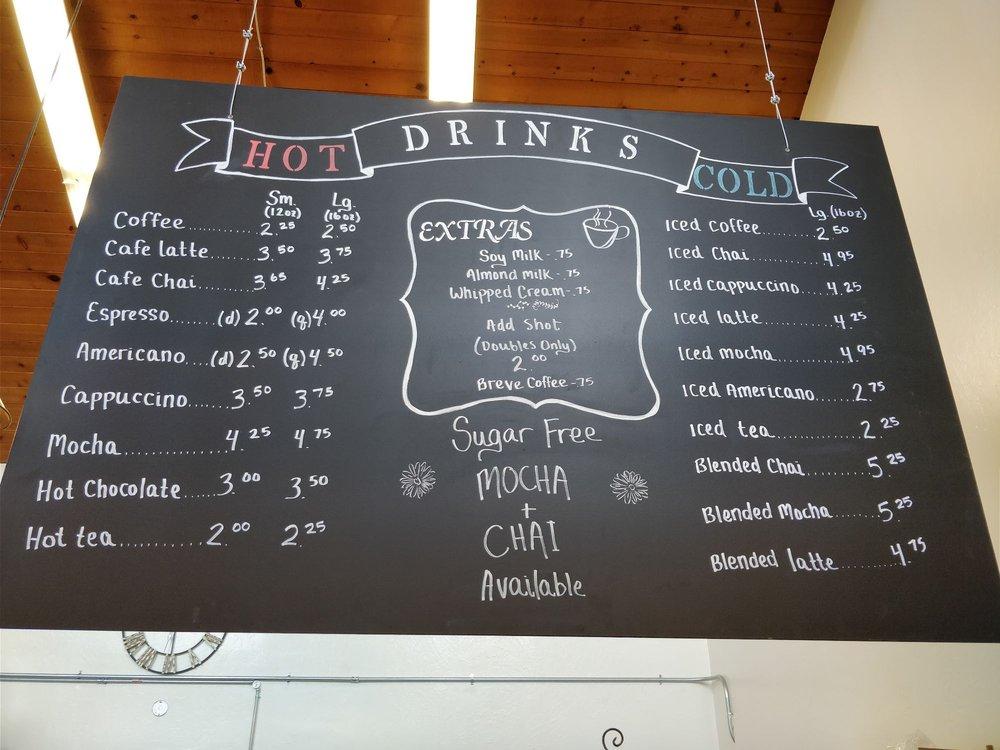 HOT DRINKS COLD
Sm. Lg.
(12oz) (16oz)
Coffee.......... 2.25 2.50
Cafe latte....... 3.50 3.75
Cafe Chai....... 3.65 4.25
Espresso.......(d) 2.00 (q) 4.00
Americano....(d) 2.50 (q) 4.50
Cappuccino...... 3.50 3.75
Mocha............... 4.25 4.75
Hot Chocolate..... 3.00 3.50
Hot tea........... 2.00 2.25
EXTRAS
Soy Milk - .75
Almond milk - .75
Whipped Cream - .75
Add Shot
(Doubles Only)
2.00
Breve Coffee - .75
Sugar Free
MOCHA
+
CHAI
Available
Lg. (16oz)
Iced Coffee........ 2.50
Iced Chai........... 4.95
Iced cappuccino.... 4.25
Iced latte........... 4.25
Iced mocha.......... 4.95
Iced Americano...... 2.75
Iced tea............ 2.25
Blended Chai......... 5.25
Blended Mocha...... 5.25
Blended latte....... 4.75